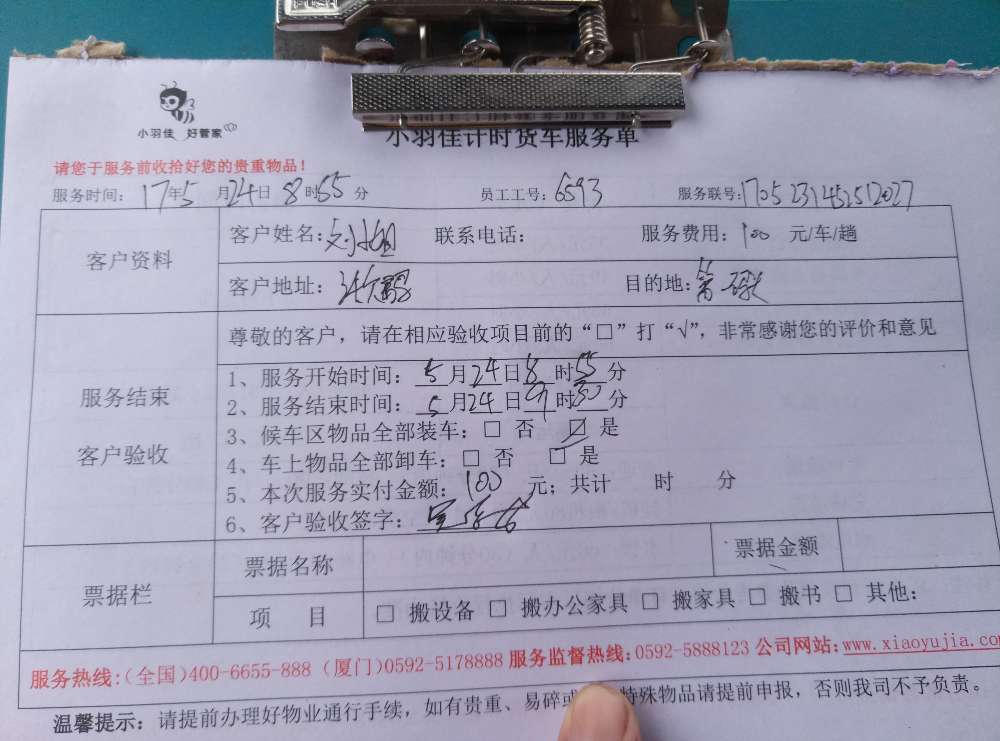 小羽佳 好管家
小羽佳计时货车服务单
请您于服务前收拾好您的贵重物品！
服务时间： 17年5月24日8时55分 员工工号：6593 服务联号：
客户资料 客户姓名：刘小姐 联系电话： 服务费用：100 元/车/趟
客户地址： 目的地：
尊敬的客户，请在相应验收项目前的“□”打“√”，非常感谢您的评价和意见
服务结束
客户验收
1、服务开始时间：5月24日8时55分
2、服务结束时间：5月24日9时30分
3、候车区物品全部装车：□ 否 ☑ 是
4、车上物品全部卸车：□ 否 ☑ 是
5、本次服务实付金额：100 元；共计 时 分
6、客户验收签字：
票据栏 票据名称 票据金额
项 目 □ 搬设备 □ 搬办公家具 □ 搬家具 □ 搬书 □ 其他：
服务热线：（全国）400-6655-888（厦门）0592-5178888 服务监督热线：0592-5888123 公司网站：www.xiaoyujia.co
温馨提示：请提前办理好物业通行手续，如有贵重、易碎或 特殊物品请提前申报，否则我司不予负责。